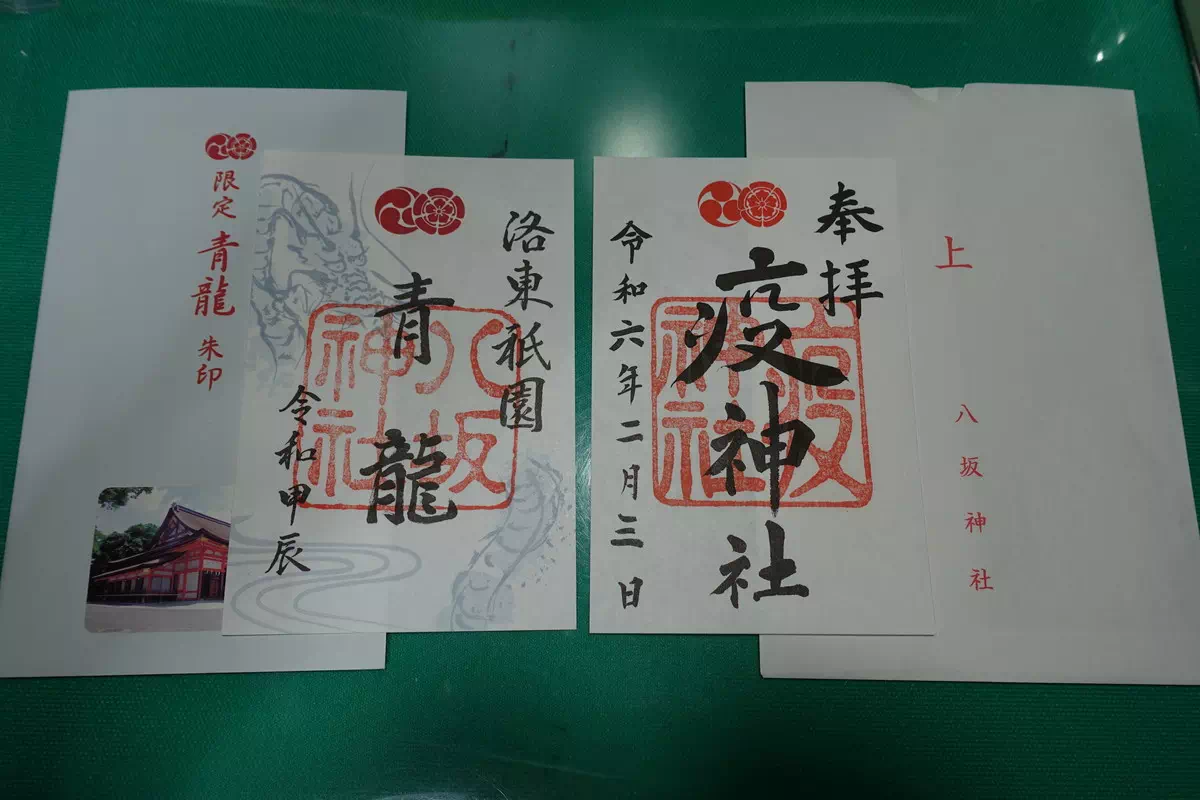 限定
青龍
朱印
洛東祇園
青龍
八坂
神社
令和甲辰
奉拝
疫神社
八坂
神社
令和六年二月三日
上
八坂神社